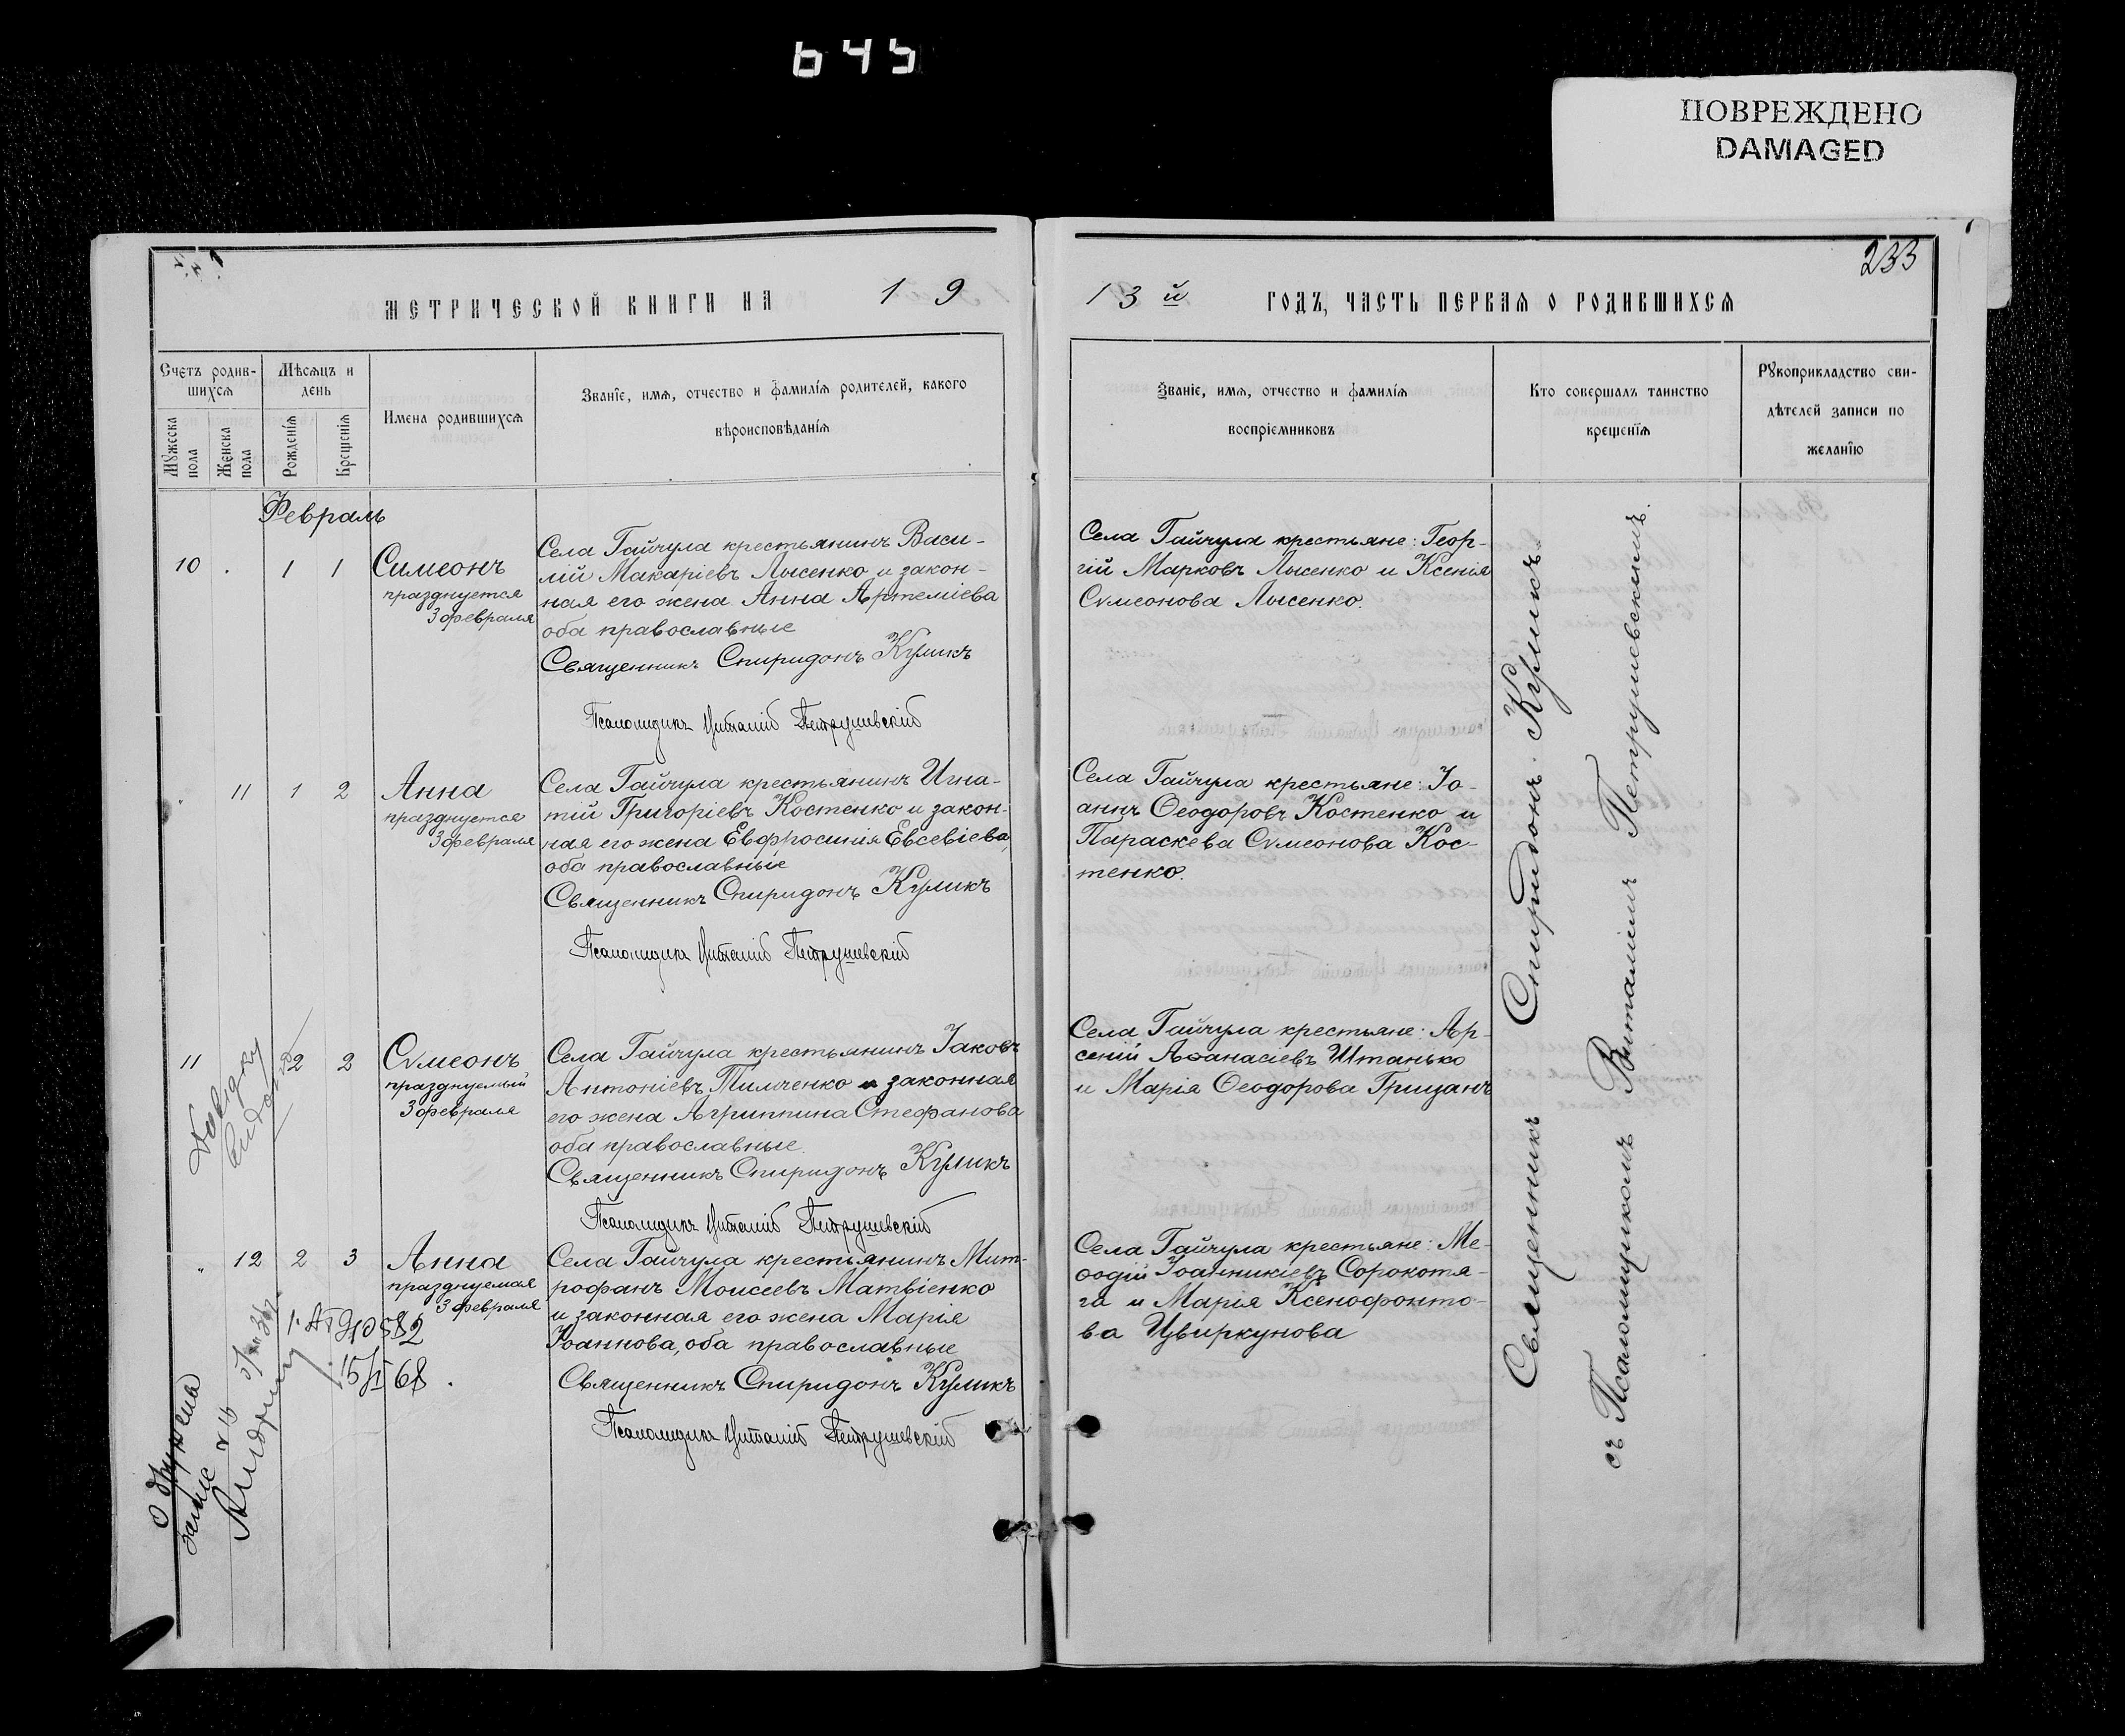 645
ПОВРЕЖДЕНО
DAMAGED
233
МЕТРИЧЕСКОЙ КНИГИ НА 19
13й ГОДЪ, ЧАСТЬ ПЕРВАЯ О РОДИВШИХСЯ
Счетъ родив-
шихся
Мꙋжеска пола
Женска пола
Мѣсяцъ и
день
Рожденія
Крещенія
Имена родившихся
Званіе, имя, отчество и фамилія родителей, какого
вѣроисповѣданія
Званіе, имя, отчество и фамилія
воспріемниковъ
Кто совершалъ таинство
крещенія
Рꙋкоприкладство сви-
дѣтелей записи по
желанію
Февраль
10 . 1 1
Симеонъ
празднуется
3 февраля
Села Гайчула крестьянинъ Васи-
лій Макаріевъ Лысенко и закон-
ная его жена Анна Артеміева
оба православные
Священникъ Спиридонъ Куликъ
Псаломщикъ Виталій Петрушевскій
Села Гайчула крестьяне: Геор-
гій Марковъ Лысенко и Ксенія
Сѵмеонова Лысенко.
" 11 1 2
Анна
празднуется
3 февраля
Села Гайчула крестьянинъ Игна-
тій Григоріевъ Костенко и закон-
ная его жена Евфросинія Евсевіева,
оба православные
Священникъ Спиридонъ Куликъ
Псаломщикъ Виталій Петрушевскій
Села Гайчула крестьяне: Іо-
аннъ Ѳеодоровъ Костенко и
Параскева Сѵмеонова Кос-
тенко.
11 2 2
Сѵмеонъ
празднуемый
3 февраля
Села Гайчула крестьянинъ Іаковъ
Антоніевъ Тимченко и законная
его жена Агриппина Стефанова
оба православные.
Священникъ Спиридонъ Куликъ
Псаломщикъ Виталій Петрушевскій
Села Гайчула крестьяне: Ар-
сеній Аѳанасіевъ Штанько
и Марія Ѳеодорова Грицанъ
Довідку
видано
" 12 2 3
Анна
празднуемая
3 февраля
Села Гайчула крестьянинъ Мит-
рофанъ Моисеевъ Матвіенко
и законная его жена Марія
Іоаннова, оба православные
Священникъ Спиридонъ Куликъ
Псаломщикъ Виталій Петрушевскій
Села Гайчула крестьяне: Ме-
ѳодій Іоанникіевъ Сорокотя-
га и Марія Ксенофонто-
ва Цвиркунова
Священникъ Спиридонъ Куликъ
съ Псаломщикомъ Виталіемъ Петрушевскимъ.